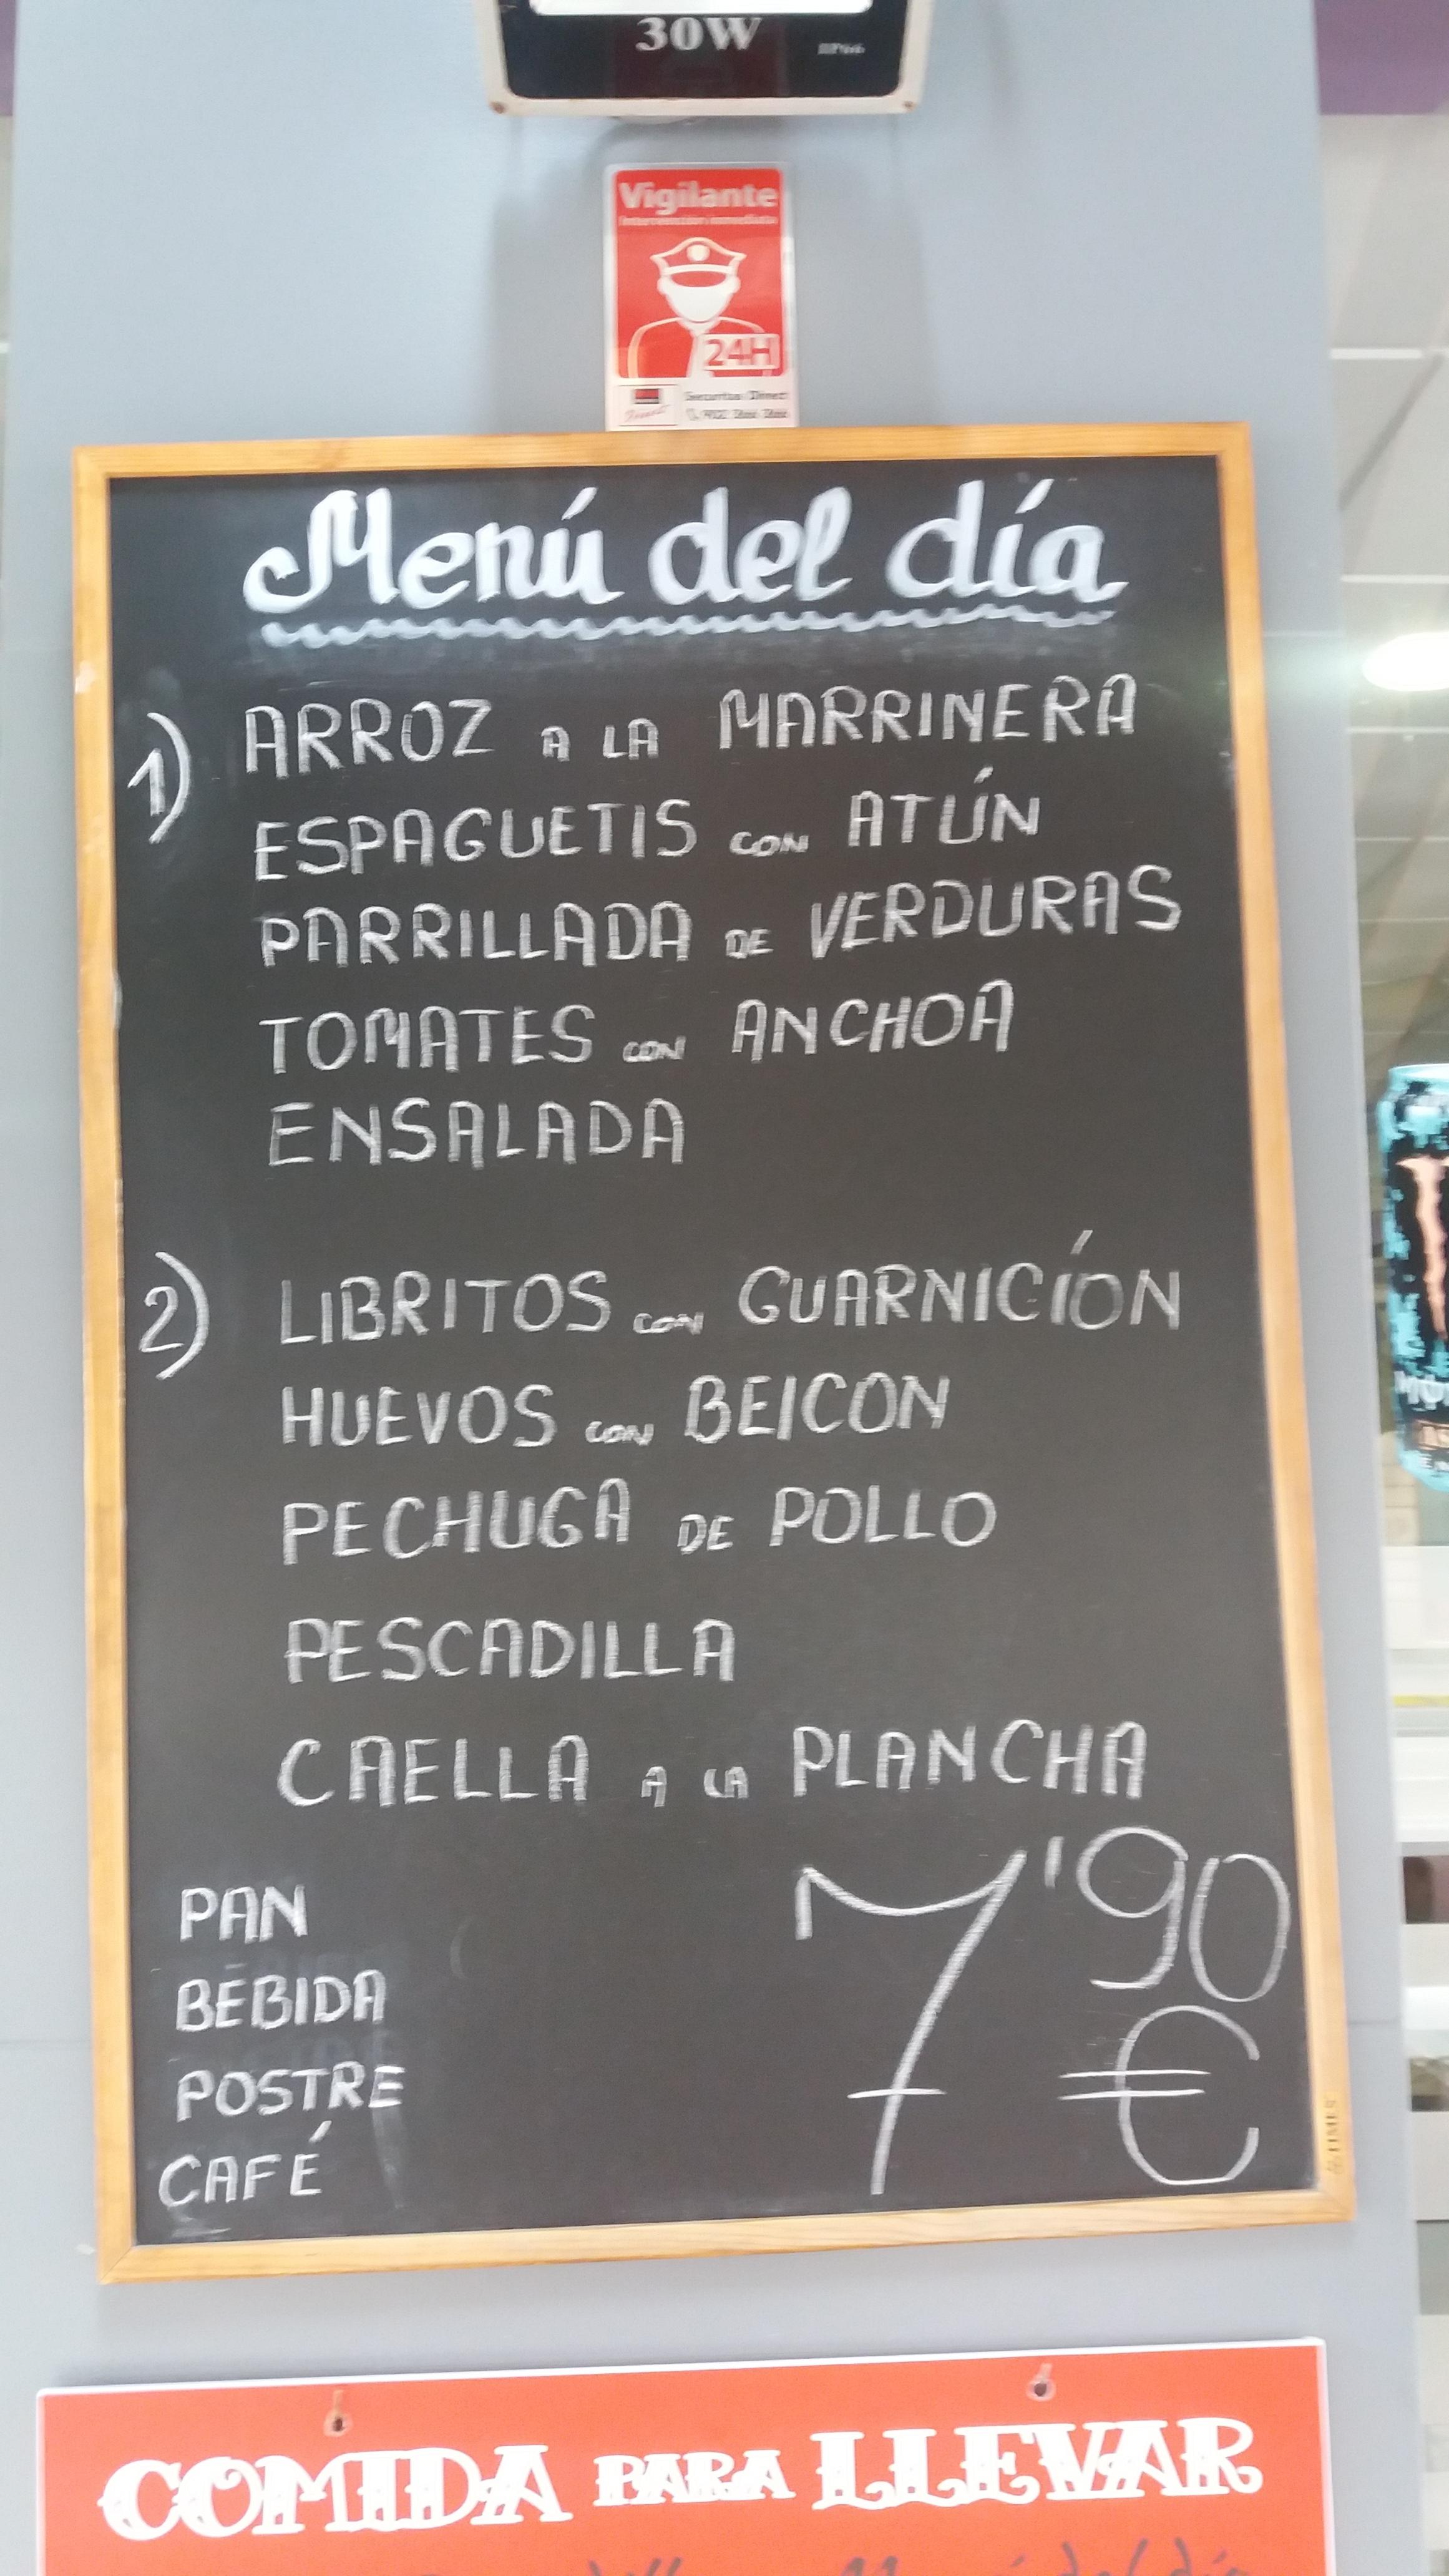 30W
Vigilante
Intervención inmediata
24H
Securitas Direct
Menú del día
1) ARROZ A LA MARRINERA
ESPAGUETIS CON ATÚN
PARRILLADA DE VERDURAS
TOMATES CON ANCHOA
ENSALADA
2) LIBRITOS CON GUARNICÍON
HUEVOS CON BEICON
PECHUGA DE POLLO
PESCADILLA
CAELLA A LA PLANCHA
PAN
BEBIDA
POSTRE
CAFÉ
7'90
€
COMIDA PARA LLEVAR
Menú del día